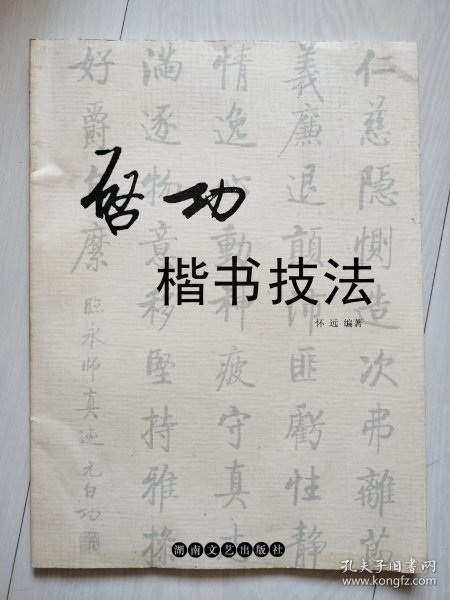 启功
楷书技法
怀远 编著
仁慈隱惻造次弗離節
義廉退顛沛匪虧性靜
情逸心動神疲守真志
滿逐物意移堅持雅操
好爵自縻
臨永師真迹 元白功
湖南文艺出版社
孔夫子旧书网
www.kongfz.com